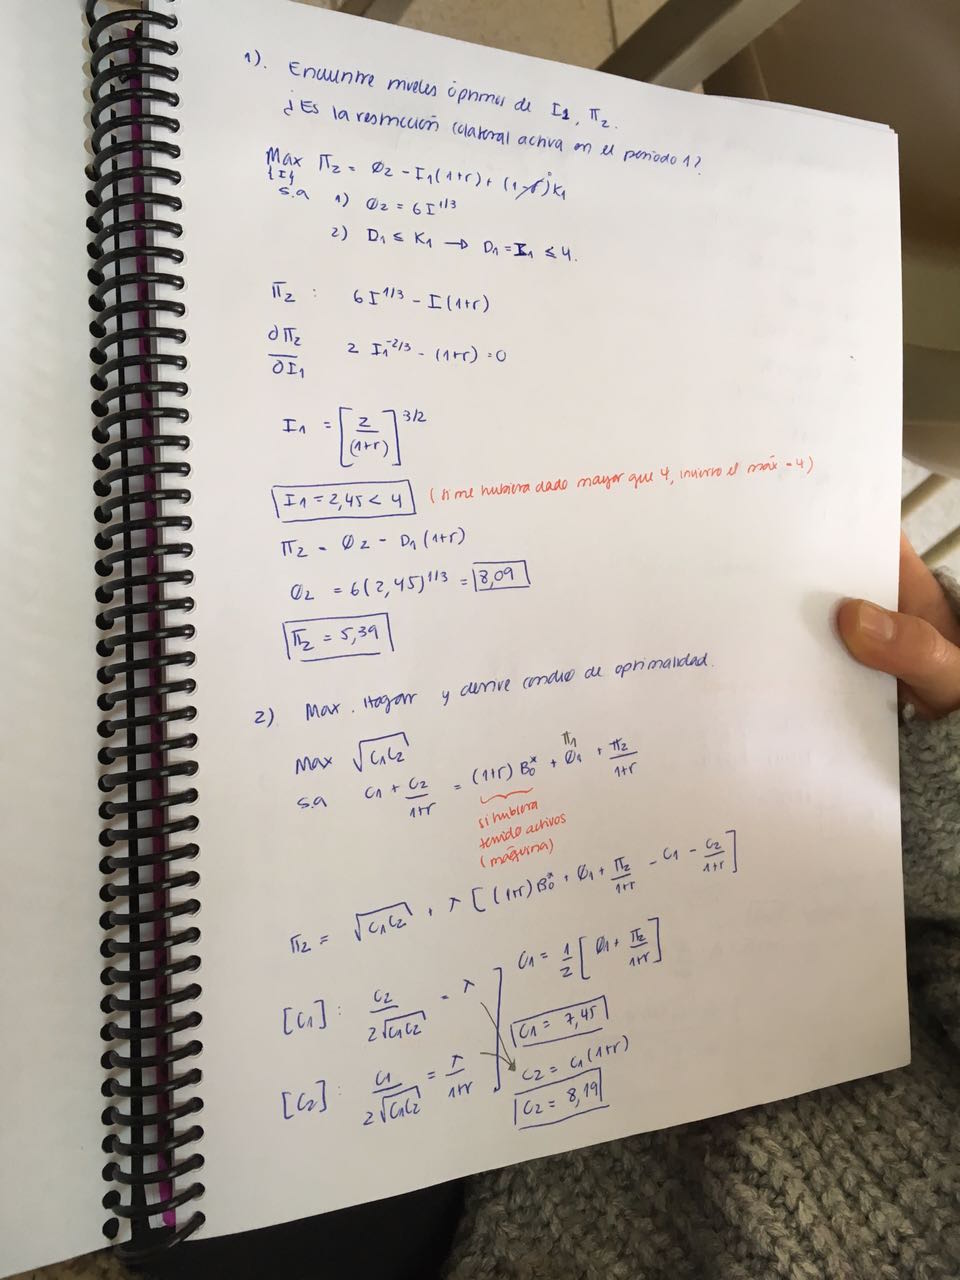 1). Encuentre niveles óptimos de I1, π2.
¿Es la restricción colateral activa en el periodo 1?
Max π2 = Q2 - I1(1+r) + (1-δ)K1
{I}
s.a 1) Q2 = 6I^1/3
2) D1 ≤ K1 → D1 = I1 ≤ 4.
π2 : 6I^1/3 - I(1+r)
∂π2/∂I1 2 I1^-2/3 - (1+r) = 0
I1 = [2/(1+r)]^3/2
I1 = 2,45 < 4 (si me hubiera dado mayor que 4, invierto el máx = 4)
π2 = Q2 - D1(1+r)
Q2 = 6(2,45)^1/3 = 8,09
π2 = 5,39
2) Max. Hogar y derive condic de optimalidad.
Max √C1C2
π1
s.a C1 + C2/1+r = (1+r)B0* + Q1 + π2/1+r
si hubiera
tenido activos
(máquina)
π2 = √C1C2 + λ[(1+r)B0* + Q1 + π2/1+r - C1 - C2/1+r]
[C1] : C2/2√C1C2 = λ
[C2] : C1/2√C1C2 = λ/1+r
C1 = 1/2[Q1 + π2/1+r]
C1 = 7,45
C2 = C1(1+r)
C2 = 8,19